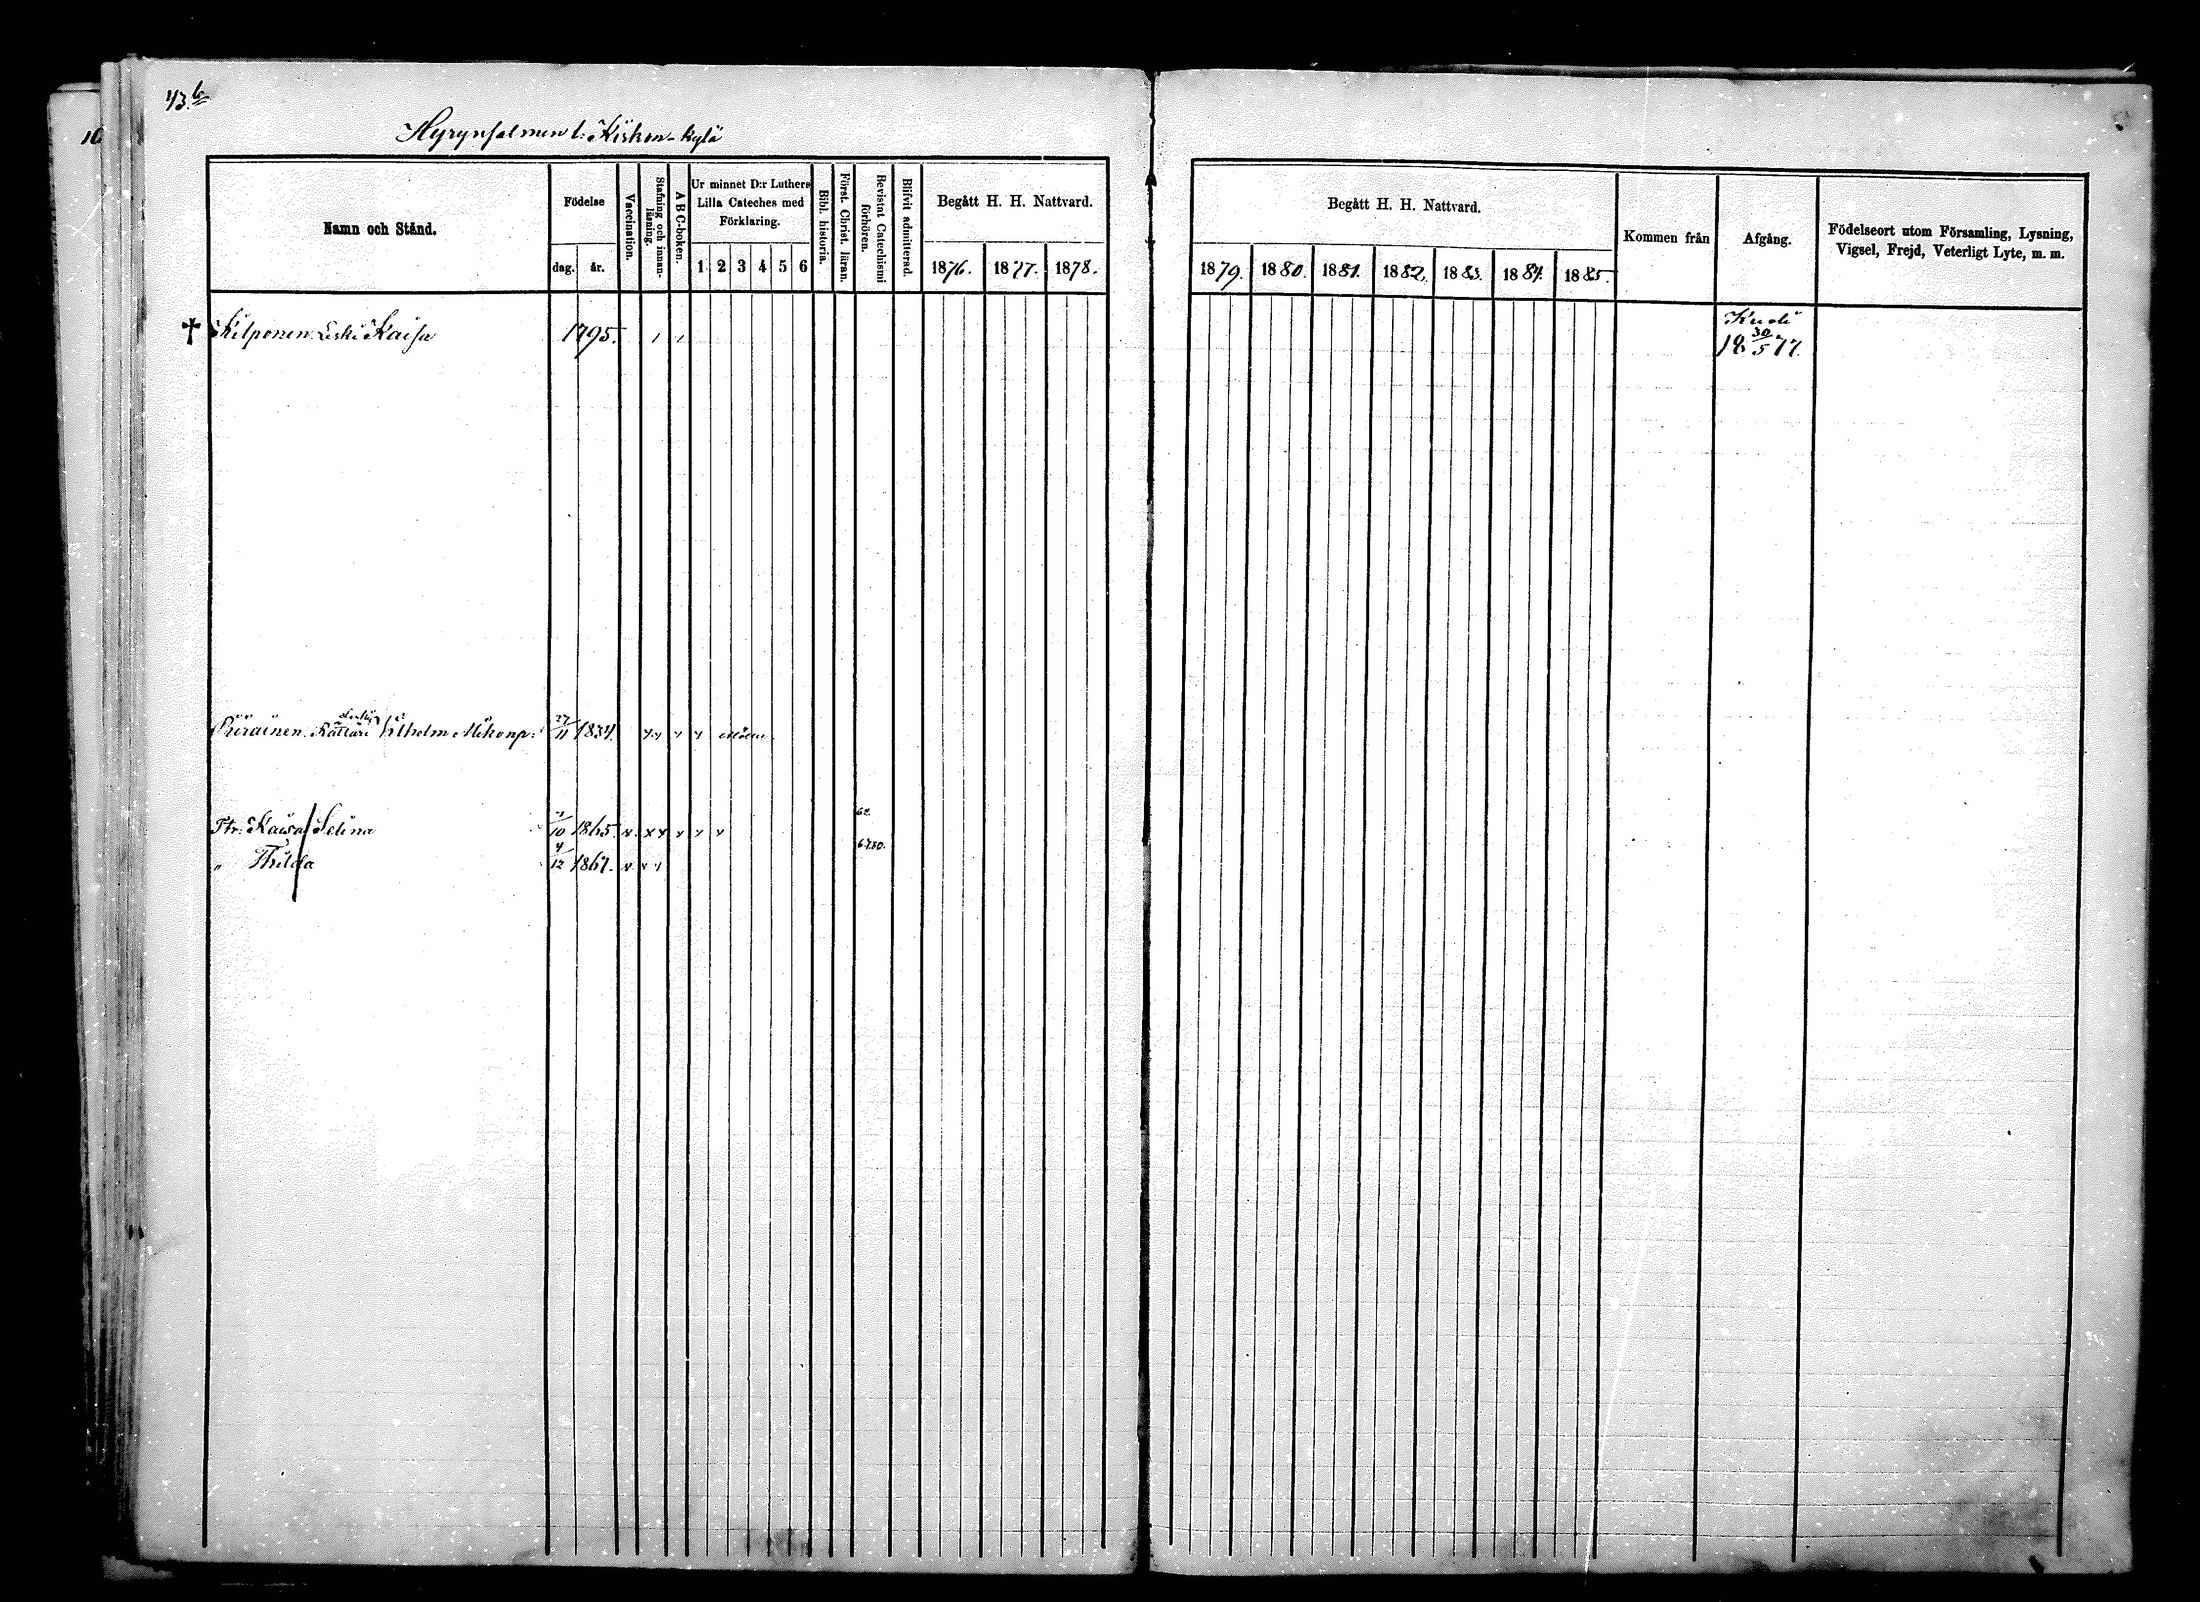 43.b
Hyrynsalmen l: Kiskon-kylä
Namn och Stånd.
Födelse
dag. år.
Vaccination.
Stafning och innan-läsning.
A B C-boken.
Ur minnet D:r Luthers Lilla Cateches med Förklaring.
1 2 3 4 5 6
Bibl. historia.
Först. Christ. läran.
Bevistat Catechismi förhören.
Blifvit admitterad.
Begått H. H. Nattvard.
1876. 1877. 1878.
Begått H. H. Nattvard.
1879. 1880. 1881. 1882. 1883. 1884. 1885.
Kommen från
Afgång.
Födelseort utom Församling, Lysning, Vigsel, Frejd, Veterligt Lyte, m. m.
† Kilponen Leski Kaisa 1795. Kuoli 18 30/5 77.
Leski
Piirainen Rättäri Wilhelm Mikonp: 27/11 1834.
Ttr: Kaisa Selina /10 1865. 62.
„ Thilda 4/12 1867. 6780.